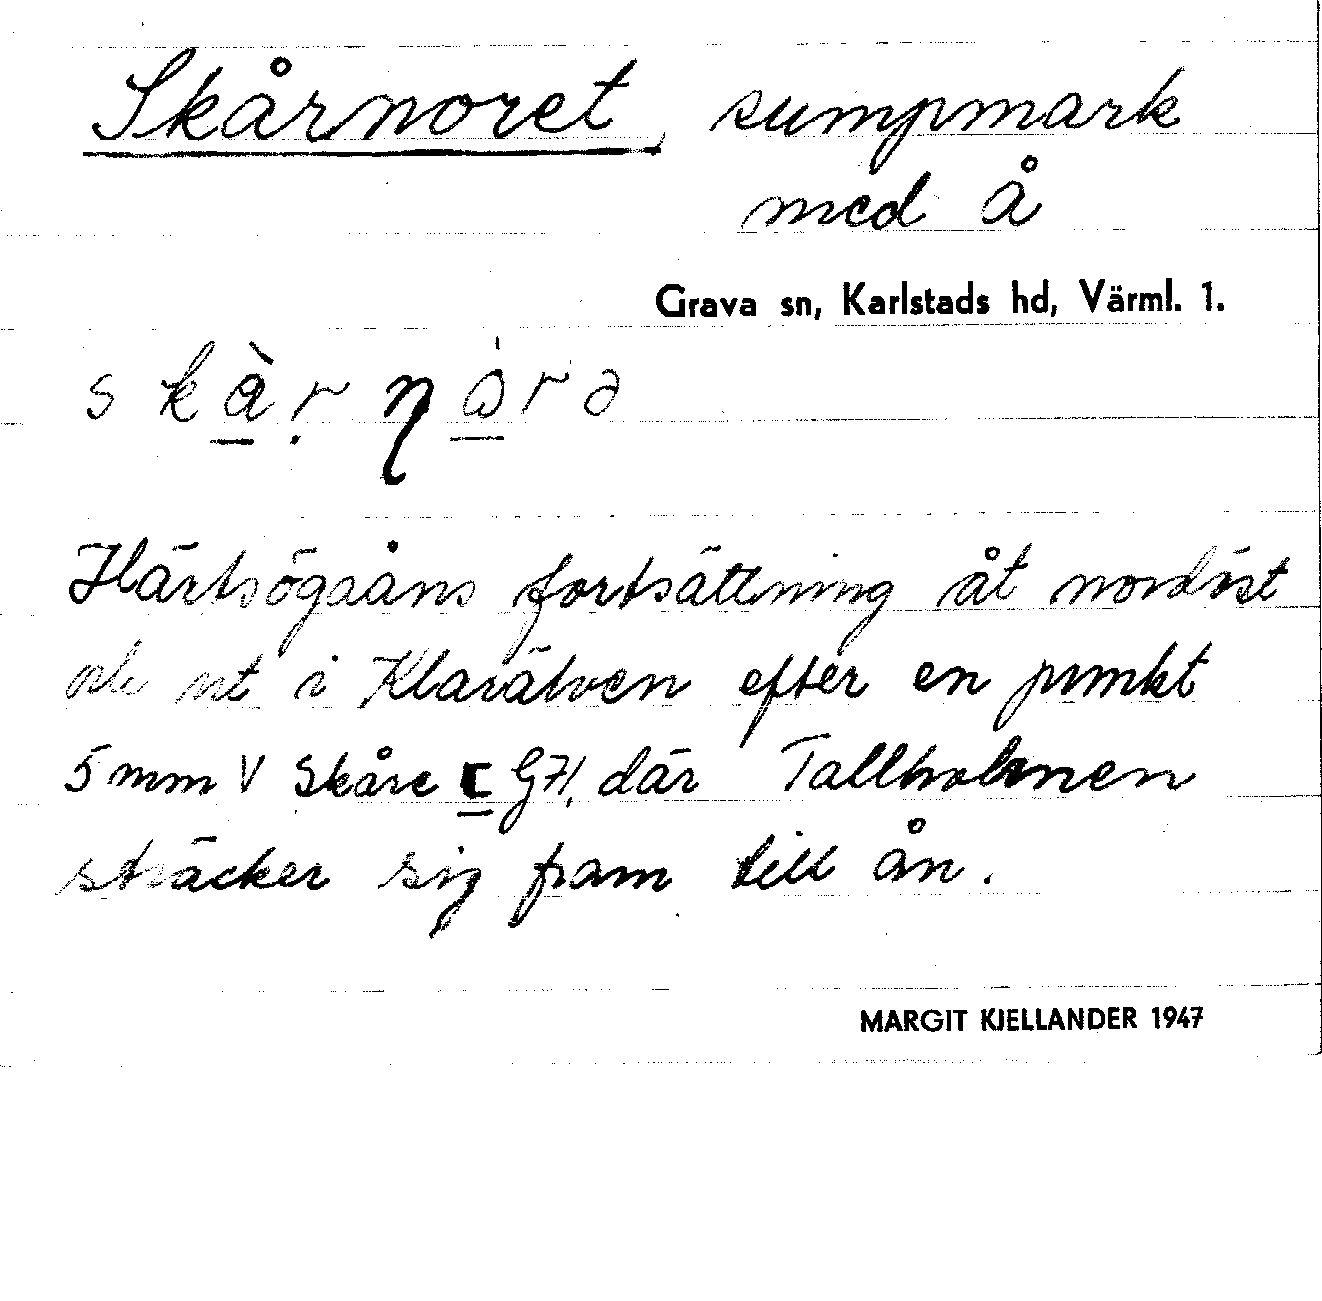 Skårnoret, sumpmark
med å
Grava sn, Karlstads hd, Värml. 1.
Härtsögaåns fortsättning åt nordöst
och ut i Klarälven efter en punkt
5 mm V Skåre C G7l, där Tallholmen
sträcker sig fram till ån.
MARGIT KJELLANDER 1947